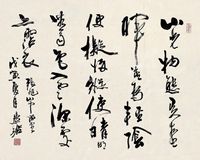 山光物態弄春
暉莫為輕陰
便擬歸縱使晴
明無雨色入雲深
處亦沾衣
張旭山中留客
戊寅夏月